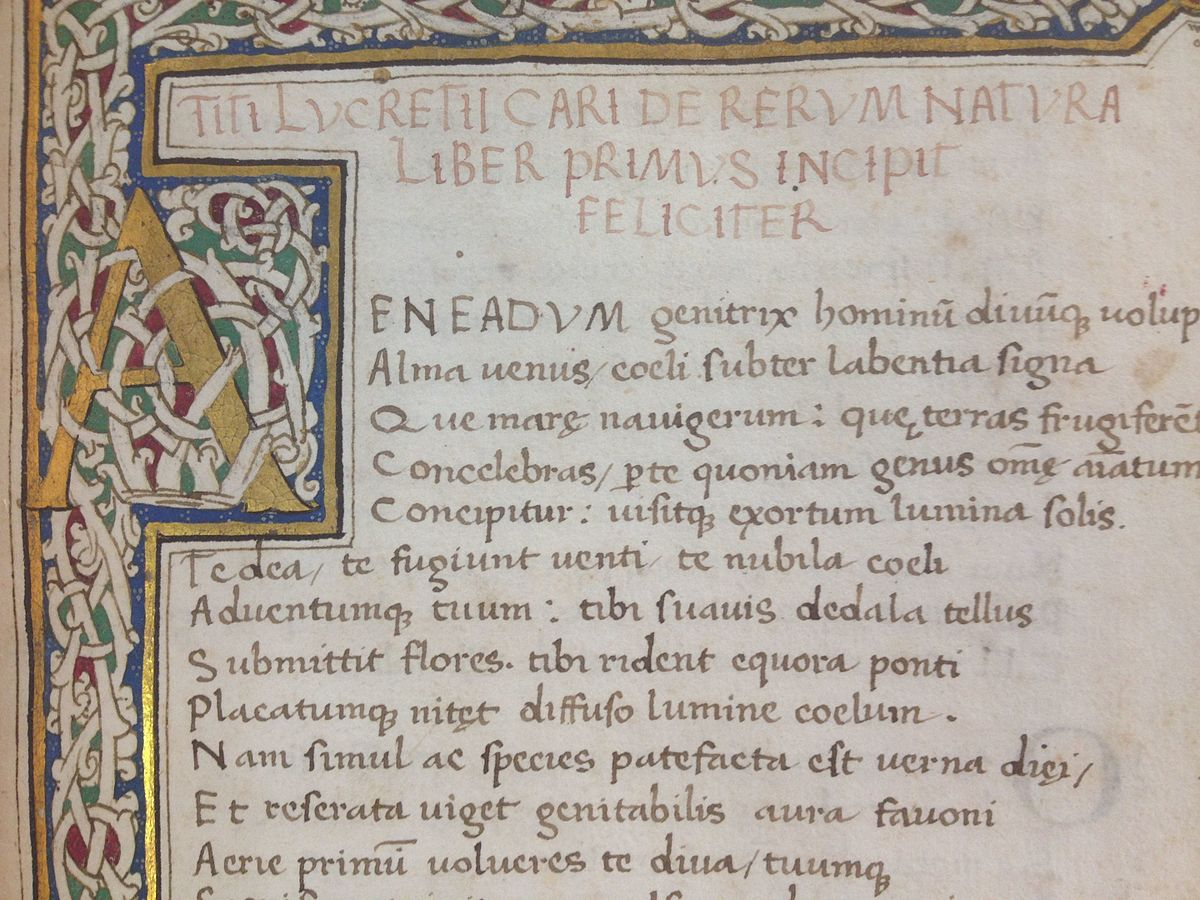 TITI LVCRETII CARI DE RERVM NATVRA
LIBER PRIMVS INCIPIT
FELICITER
AENEADVM genitrix hominū diuūqꝫ uolup
Alma uenus/ coeli subter labentia signa
Que marę nauigerum: quę terras frugiferē
Concelebras/ ꝑte quoniam genus omę aīatum
Concipitur: uisitqꝫ exortum lumina solis.
Te dea/ te fugiunt uenti/ te nubila coeli
Aduentumqꝫ tuum: tibi suauis dedala tellus
Submittit flores. tibi rident equora ponti
Placatumqꝫ nitęt diffuso lumine coelum.
Nam simul ac species patefacta est uerna dięi/
Et reserata uiget genitabilis aura fauoni
Aerie primū uolucres te diua/ tuumqꝫ